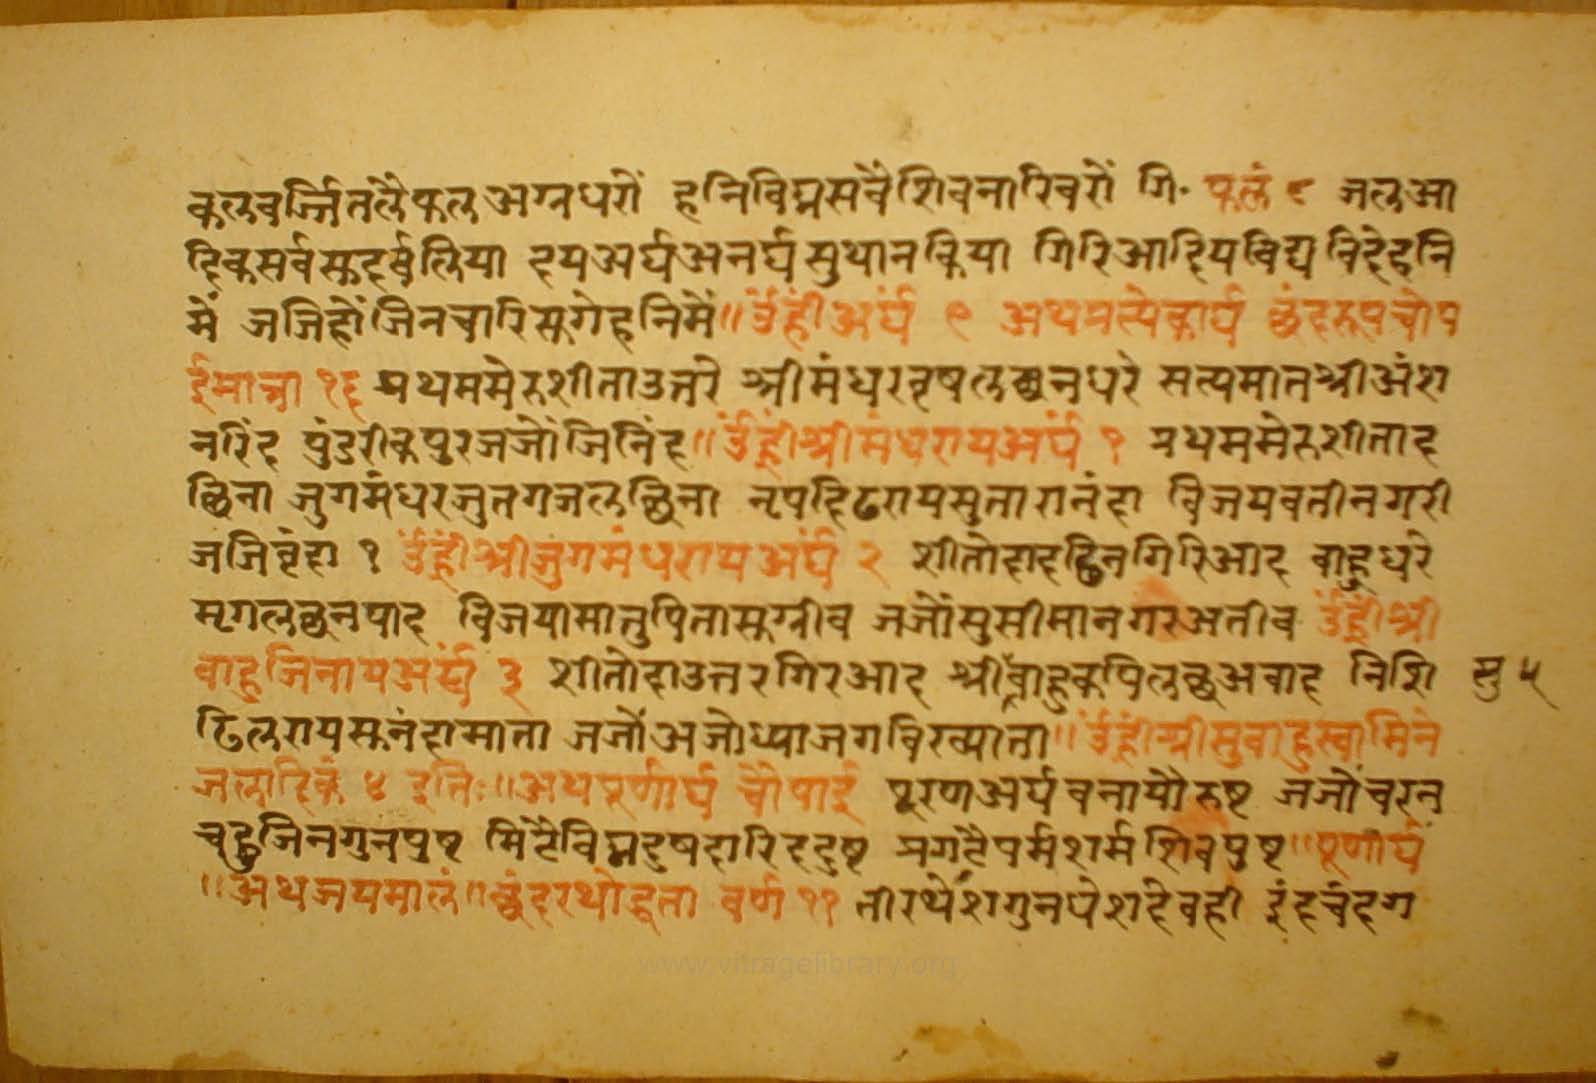 कलवर्ज्जितलैफलअग्रधरों हनिविघ्नसवैंशिवनारिवरों गि॰ फलं ८ जलआ
दिकसर्वसुदर्बलिया दयअर्घअनर्घसुथानकिया गिरिआदियविद्यविदेहनि
में जजिहोंजिनचारिसुगेहनिमें॥ॐह्रींअर्घं ९ अथप्रत्येकार्घ छंदरूपचोप
ईमात्रा १६ प्रथममेरुशीताउत्तरे श्रीमंधरवृषलछनधरे सत्यमातश्रीअंश
नरिंद पुंडरीकपुरजजोंजिनिंद॥ॐह्रींश्रीमंधरायअर्घं १ प्रथममेरुशीताद
छिना जुगमंधरजुतगजलछिना नृपद्दिढरायसुतारानंदा विजयवतीनगरी
जजिवंदा १ ॐह्रींश्रीजुगमंधरायअर्घं २ शीतोदादछिनगिरिआद बाहुधरे
मृगलछनपाद विजयामातुपितासुग्रीव जजोंसुसीमानगरअतीव ॐह्रींश्री
बाहुजिनायअर्घं ३ शीतोदाउत्तरगिरआद श्रीबाहुकपिलछअबाद निशि
सु ५
ढिलरायसुनंदामाता जजोंअजोध्याजगविख्याता॥ॐह्रींश्रीसुबाहुस्वामिने
जलादिकं ४ इतिः॥अथपूर्णार्घ चौपाई पूरणअर्घबनायौरुष्ट जजोंचरन
चहुजिनगुनपुष्ट मिटैविघ्नदुषदारिददुष्ट प्रगटैपर्मशर्मशिवपुष्ट॥पूर्णार्घं
॥अथजयमालं॥छंदरथोद्धता वर्ण ११ तीरथेशगुनपेशदेवही इंदचंदग
www.vitragelibrary.org